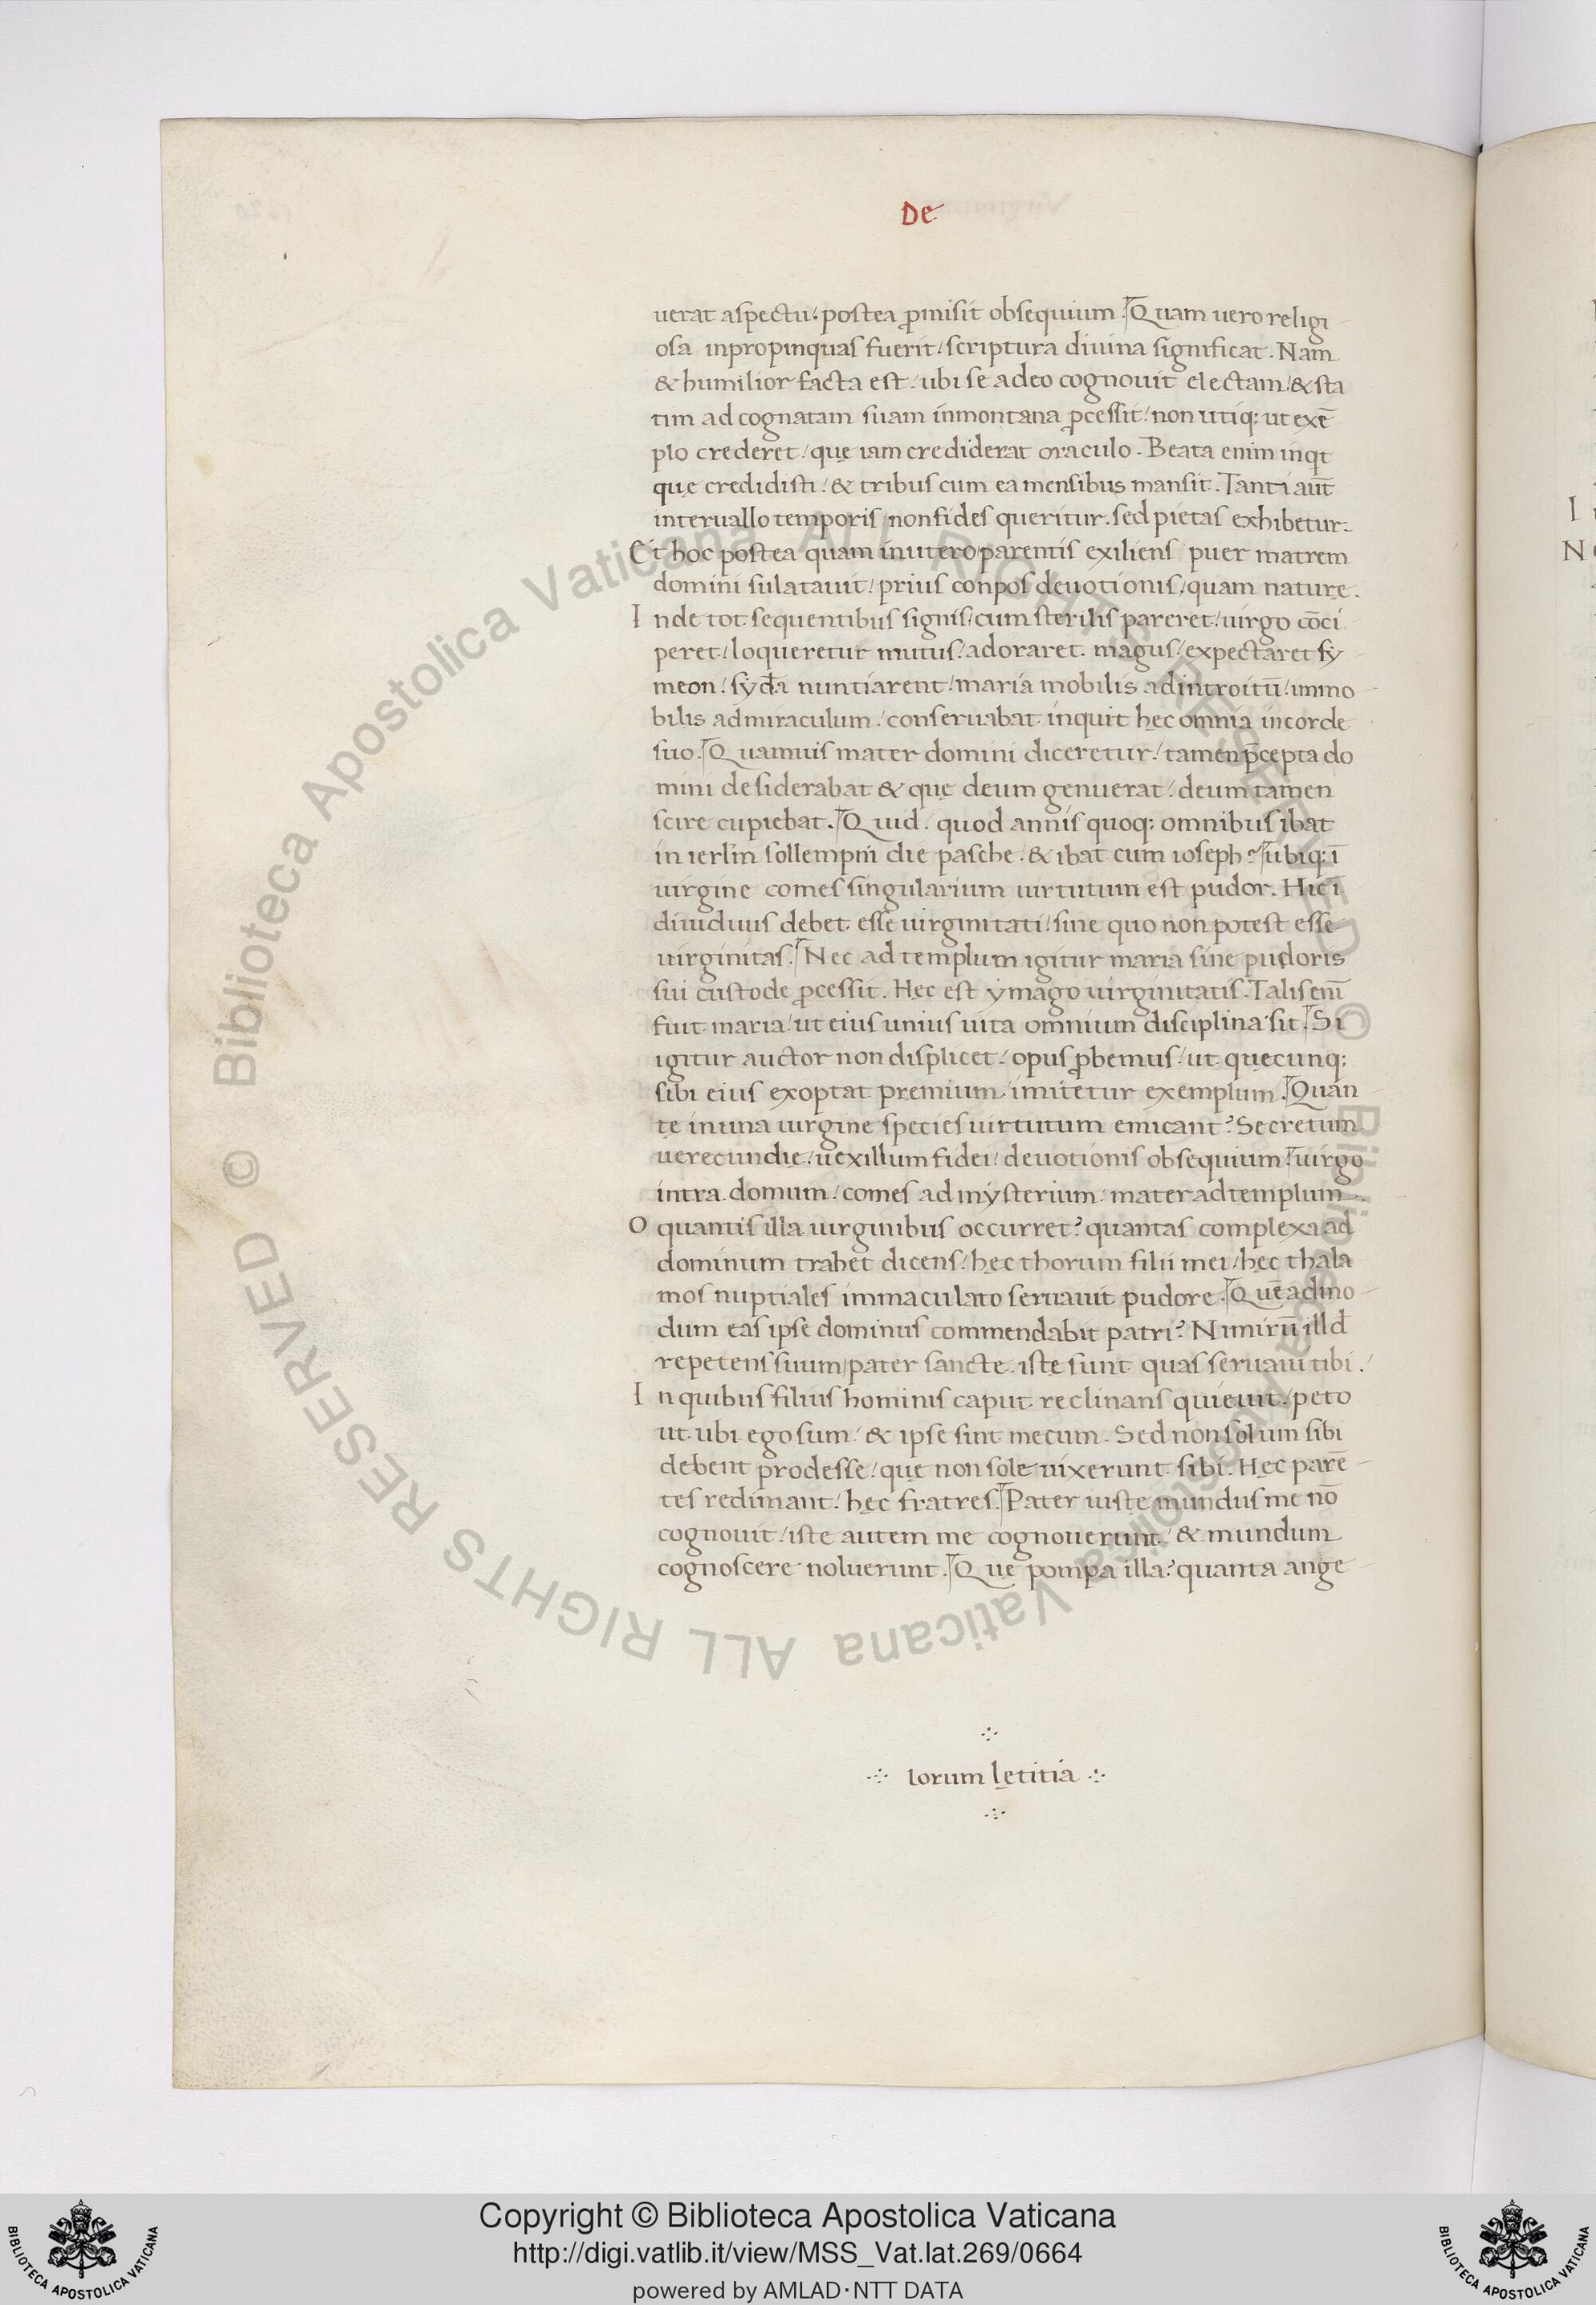 De
uerat aspectu / postea ꝓmisit obsequium. Quam uero religi
osa inpropinquas fuerit / scriptura diuina significat. Nam
& humilior facta est / ubi se adeo cognouit electam / & sta
tim ad cognatam suam inmontana ꝓcessit / non utiq; ut exē
plo crederet / quę iam crediderat oraculo. Beata enim inqt
quę credidisti / & tribus cum ea mensibus mansit. Tanti aūt
interuallo temporis non fides queritur. sed pietas exhibetur.
Et hoc postea quam inutero parentis exiliens puer matrem
domini sulatauit / prius conpos deuotionis / quam naturę.
Inde tot sequentibus signis / cum sterilis pareret / uirgo cōci
peret / loqueretur mutus / adoraret magus / expectaret sy
meon / syda nuntiarent / maria mobilis adintroitū / immo
bilis admiraculum / conseruabat inquit hęc omnia incorde
suo. Quamuis mater domini diceretur / tamen p̄cepta do
mini desiderabat & quę deum genuerat / deum tamen
scire cupiebat. Quid quod annis quoq; omnibus ibat
in ierl̄m sollempni die pasche / & ibat cum ioseph? ubiq; ī
uirgine comes singularium uirtutum est pudor. Hic ī
diuiduus debet esse uirginitati / sine quo non potest esse
uirginitas. Nec ad templum igitur maria sine pudoris
sui custode ꝓcessit. Hęc est ymago uirginitatis. Talis enī
fuit maria / ut eius unius uita omnium disciplina sit. Si
igitur auctor non displicet / opus ꝓbemus / ut quęcunq;
sibi eius exoptat premium / imitetur exemplum. Quan
tę inuna uirgine species uirtutum emicant? Secretum
uerecundię / uexillum fidei / deuotionis obsequium / uirgo
intra domum / comes ad mysterium / mater adtemplum.
O quantis illa uirginibus occurret? quantas complexa ad
dominum trahet dicens / hęc thorum filii mei / hęc thala
mos nuptiales immaculato seruauit pudore. Quēadmo
dum eas ipse dominus commendabit patri? Nimirū illd
repetens suum / pater sancte istę sunt quas seruaui tibi /
In quibus filius hominis caput reclinans quieuit / peto
ut ubi ego sum / & ipse sint mecum. Sed non solum sibi
debent prodesse / quę non sole uixerunt sibi. Hęc parē
tes redimant / hęc fratres. Pater iuste mundus me nō
cognouit / iste autem me cognouerunt / & mundum
cognoscere noluerunt. Quę pompa illa? quanta ange
lorum lętitia
© Biblioteca Apostolica Vaticana ALL RIGHTS RESERVED
© Biblioteca Apostolica Vaticana ALL RIGHTS RESERVED
I
N
Copyright © Biblioteca Apostolica Vaticana
http://digi.vatlib.it/view/MSS_Vat.lat.269/0664
powered by AMLAD·NTT DATA
BIBLIOTECA APOSTOLICA VATICANA
BIBLIOTECA APOSTOLICA VATICANA